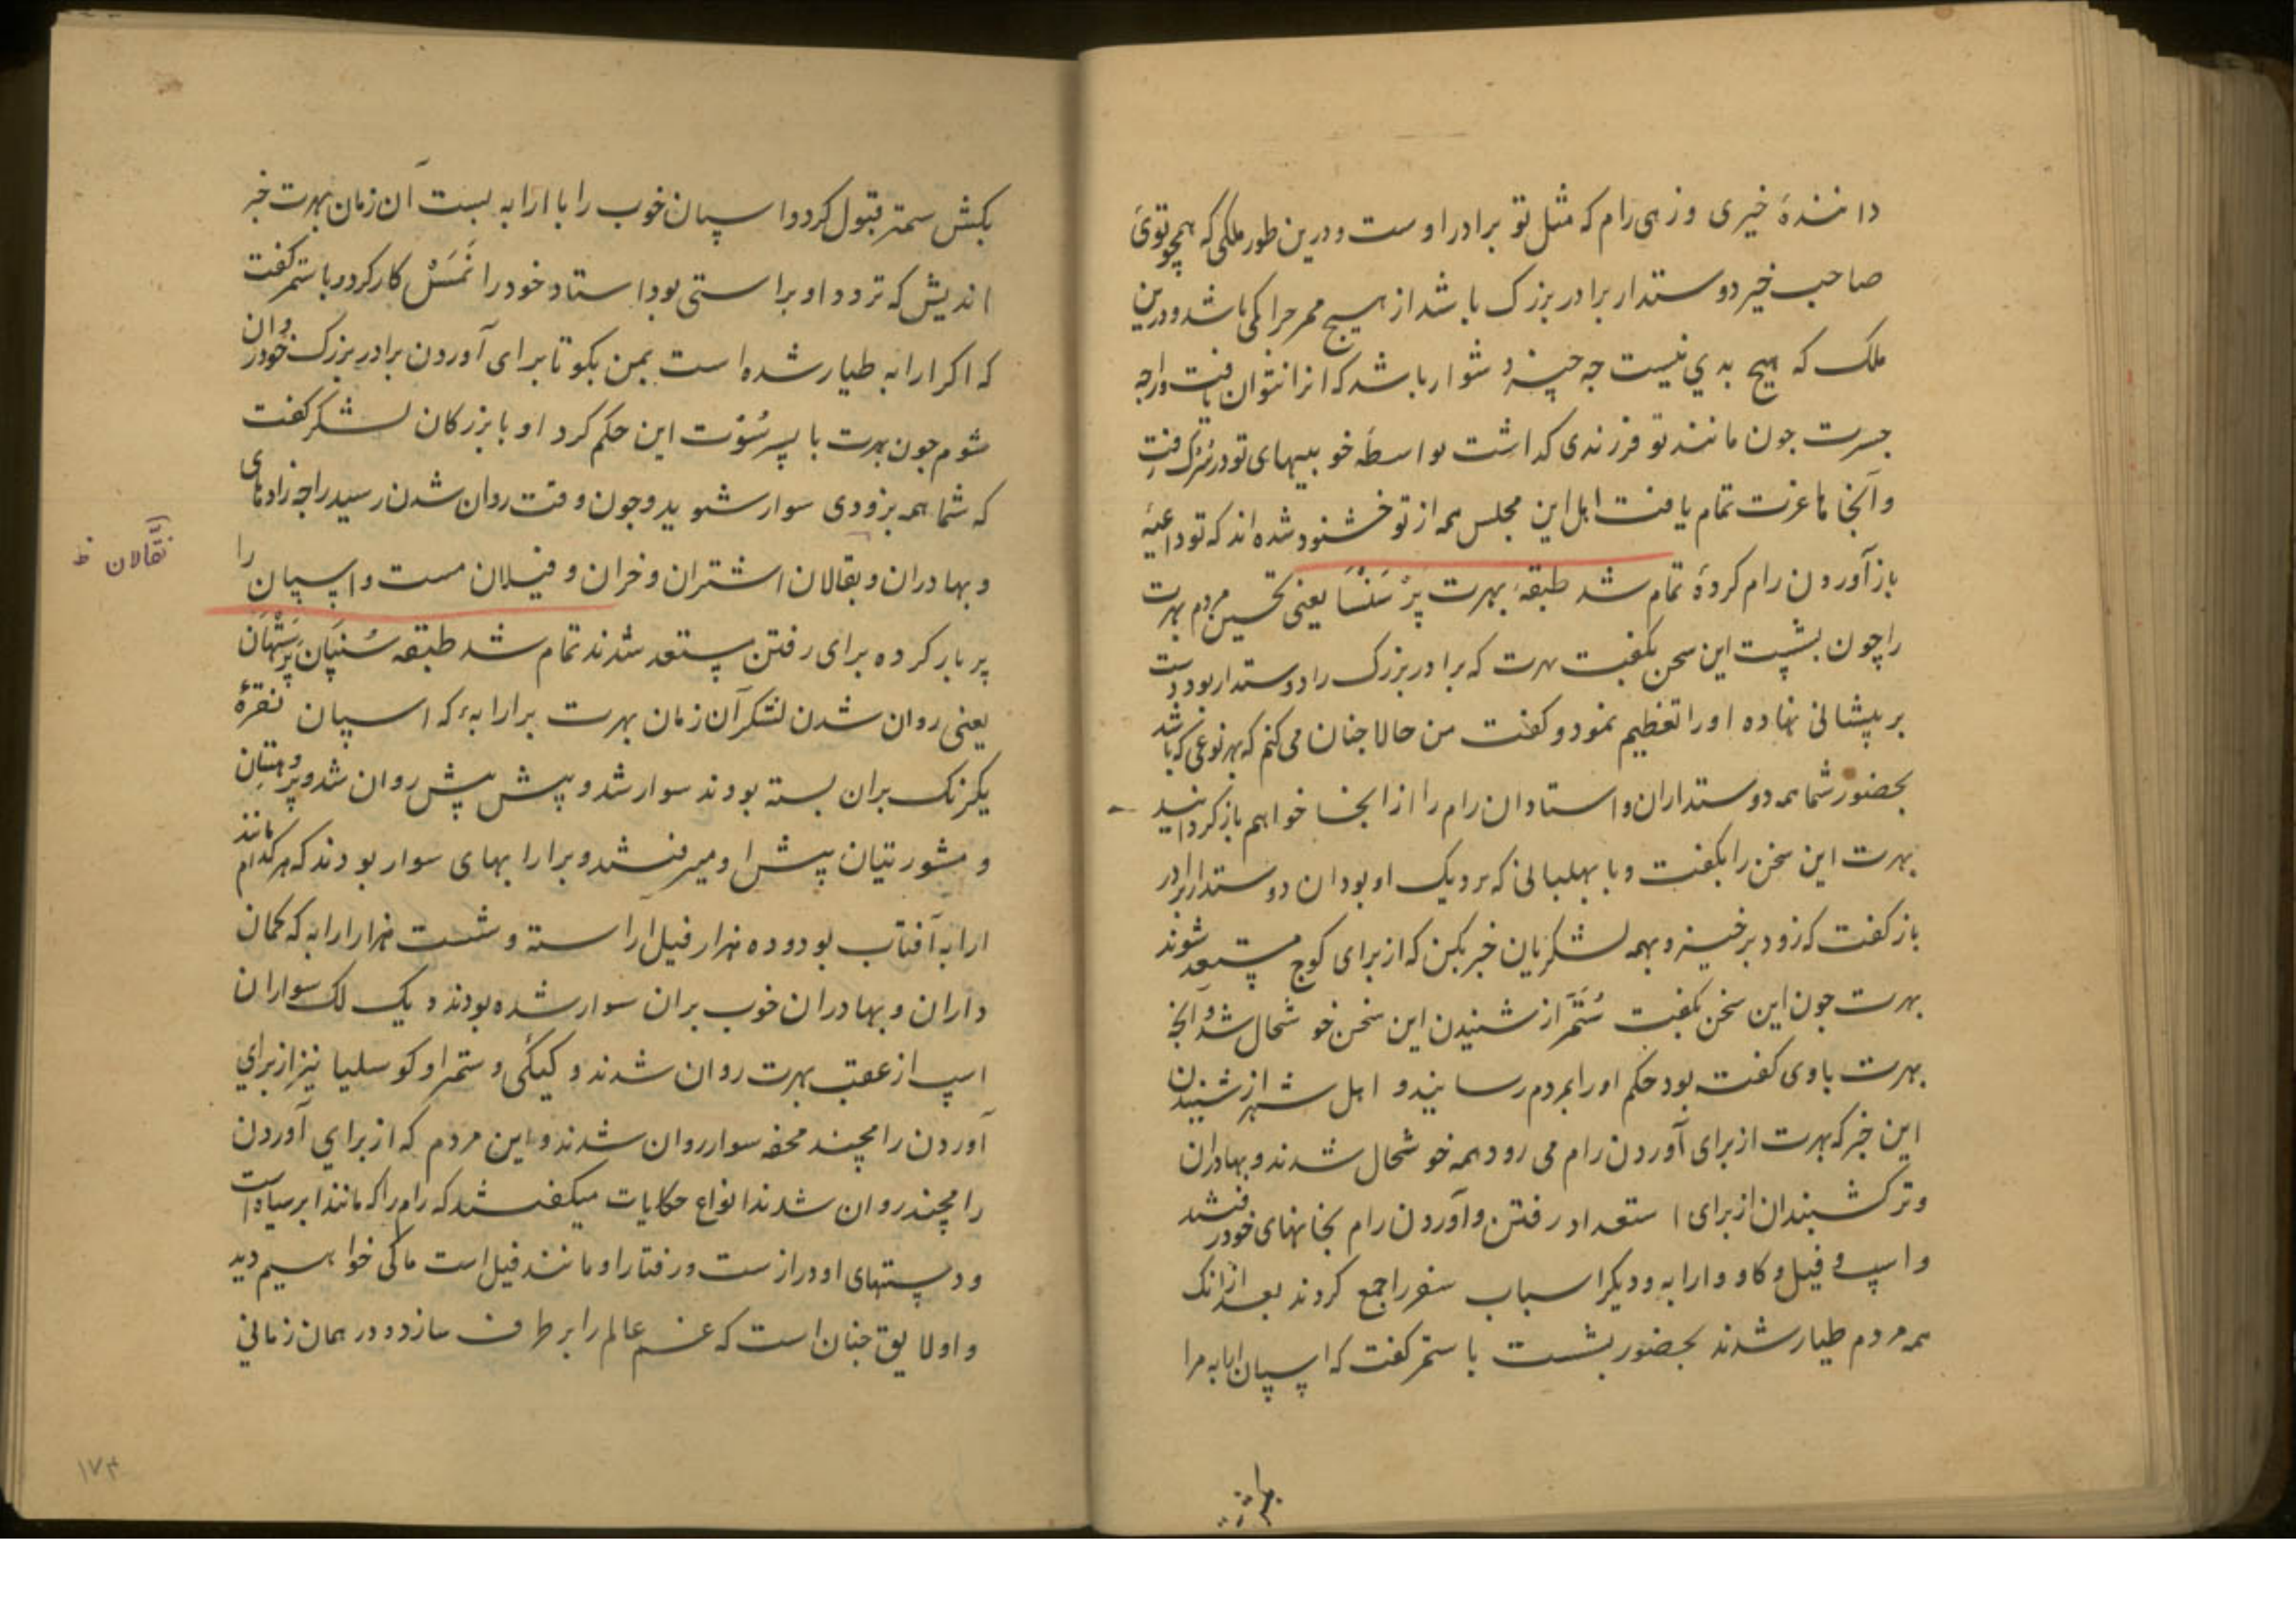 دانندهٔ خیری و زهی رام که مثل تو برادر اوست و درین طور ملکی که همچو توئ
صاحب خیر دوستدار برادر بزرک باشد از هیچ ممر حرا کمی باشد و درین
ملک که هیچ بدي نیست چه چیز دشوار باشد که انرا نتوان یافت و راجه
جسرت چون مانند تو فرزندی کداشت بواسطهٔ خوبیهای تو در سرک رفت
و آنجا ها عزت تمام یافت اهل این مجلس همه از تو خشنود شده اند که تو داعیهٔ
باز آوردن رام کردهٔ تمام شد طبقهٔ بهرت پرسنسا یعنی تحسین مردم بهرت
را چون بشپت این سخن بکفت بهرت که برادر بزرک را دوستدار بود دست
بر پیشانی نهاده او را تعظیم نمود و کفت من حالا چنان می کنم که بهر نوعی که باشد
بحضور شما همه دوستداران و استادان رام را از انجا خواهم باز کردانید
بهرت این سخن را بکفت و با بهلبانی که نزدیک او بود ان دوستدار برادر
باز کفت که زود برخیز و بهمه لشکریان خبر بکن که از برای کوچ مستعد شوند
بهرت چون این سخن بکفت سُمَتَر از شنیدن این سخن خوشحال شد و آنچه
بهرت باوی کفته بود حکم او را بمردم رسانید و اهل شهر از شنیدن
این خبر که بهرت از برای آوردن رام می رود همه خوشحال شدند و بهادران
و ترکشبندان از برای استعداد رفتن و آوردن رام بخانهای خود رفتند
و اسپ و فیل و کاو و ارابه و دیکر اسباب سفر را جمع کردند بعد ازانک
همه مردم طیار شدند بحضور بشست با سمتر کفت که اسپان ارابه مرا
بکش سمتر قبول کرد و اسپان خوب را با ارابه بست آن زمان بهرت خیر
اندیش که تردد او براستی بود استاد خود را نمسل کار کرد و با سمتر کفت
که اکر ارابه طیار شده است بمن بکو تا برای آوردن برادر بزرک خود روان
شوم چون بهرت با پسر سُوت این حکم کرد او با بزرکان لشکر کفت
که شما همه بزودی سوار شوید و چون وقت روان شدن رسید راجه زادهای
و بهادران و بقالان اشتران و خران و فیلان مست و اسپان را
نقّالان ظ
پر بار کرده برای رفتن مستعد شدند تمام شد طبقه سُنیان پَرستهان
یعنی روان شدن لشکر آن زمان بهرت بر ارابهٔ که اسپان نقرهٔ
یکرنک بران بسته بودند سوار شد و پیش پیش روان شد و پروهتان
و مشورتیان پیش او میرفتند و بر ارابهای سوار بودند که هر کدام مانند
ارابهٔ آفتاب بود و ده هزار فیل آراسته و شست هزار ارابه که کمان
داران و بهادران خوب بران سوار شده بودند و یک لک سواران
اسپ از عقب بهرت روان شدند و کیکئی و سمترا و کوسلیا نیز از برای
آوردن رامچند محفه سوار روان شدند و این مردم که از برای آوردن
رامچند روان شدند انواع حکایات میکفتند که رام را که مانند ابر سیاه است
و دستهای او درازست و رفتار او مانند فیل است ما کی خواهیم دید
و او لایق چنان است که غم عالم را بر طرف سازد و در همان زمانی
۱۷۳